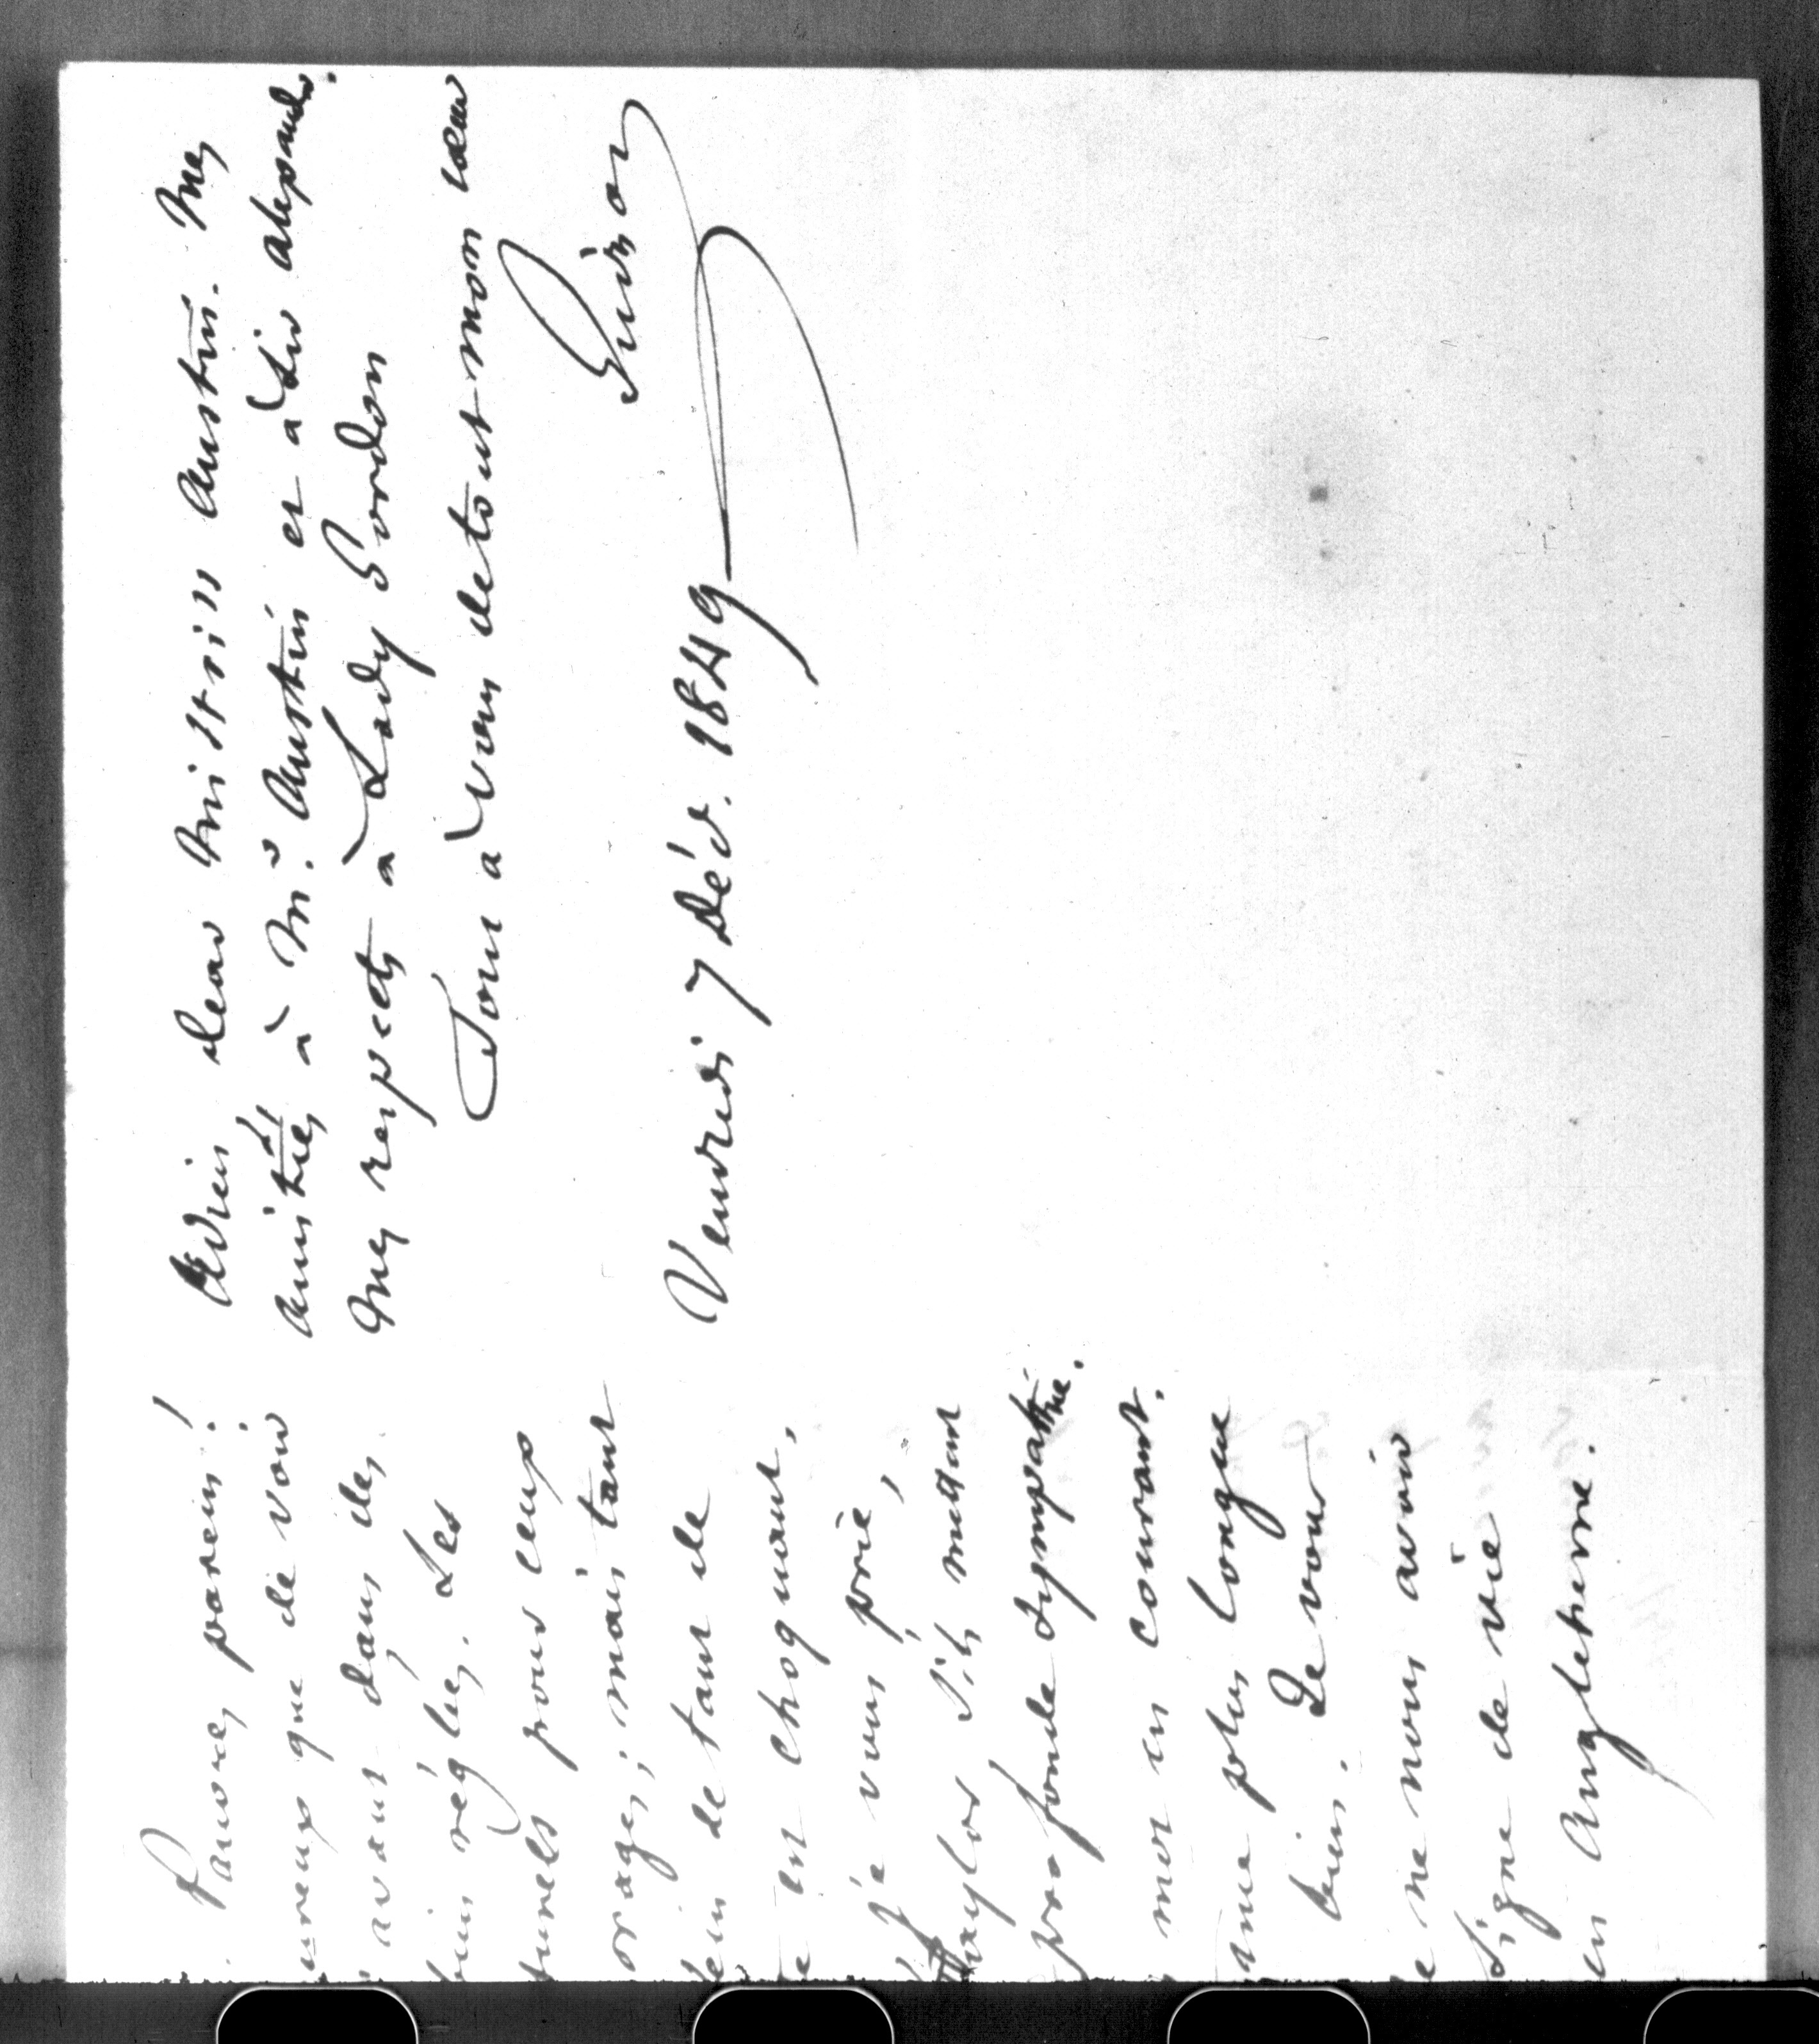 Pauvres parens!
que de voir
avant dans des
bien réglées. Les
pour ceux
orages; mais tant
de tant de
e est choquant,
je vous prie,
Taylor s'ils mettent
profonde sympathie.
mot en courant.
plus longue
bien. De vous
e ne nous avoir
signe de vie
en Angleterre.
Adieu dear Mistriss Austin. Mes
amitiés à Mr. Austin et à Sir Alexander.
Mes respects à Lady Gordon
Tout à vous de tout mon cœur
Guizot
Vendredi 7 Déc. 1849